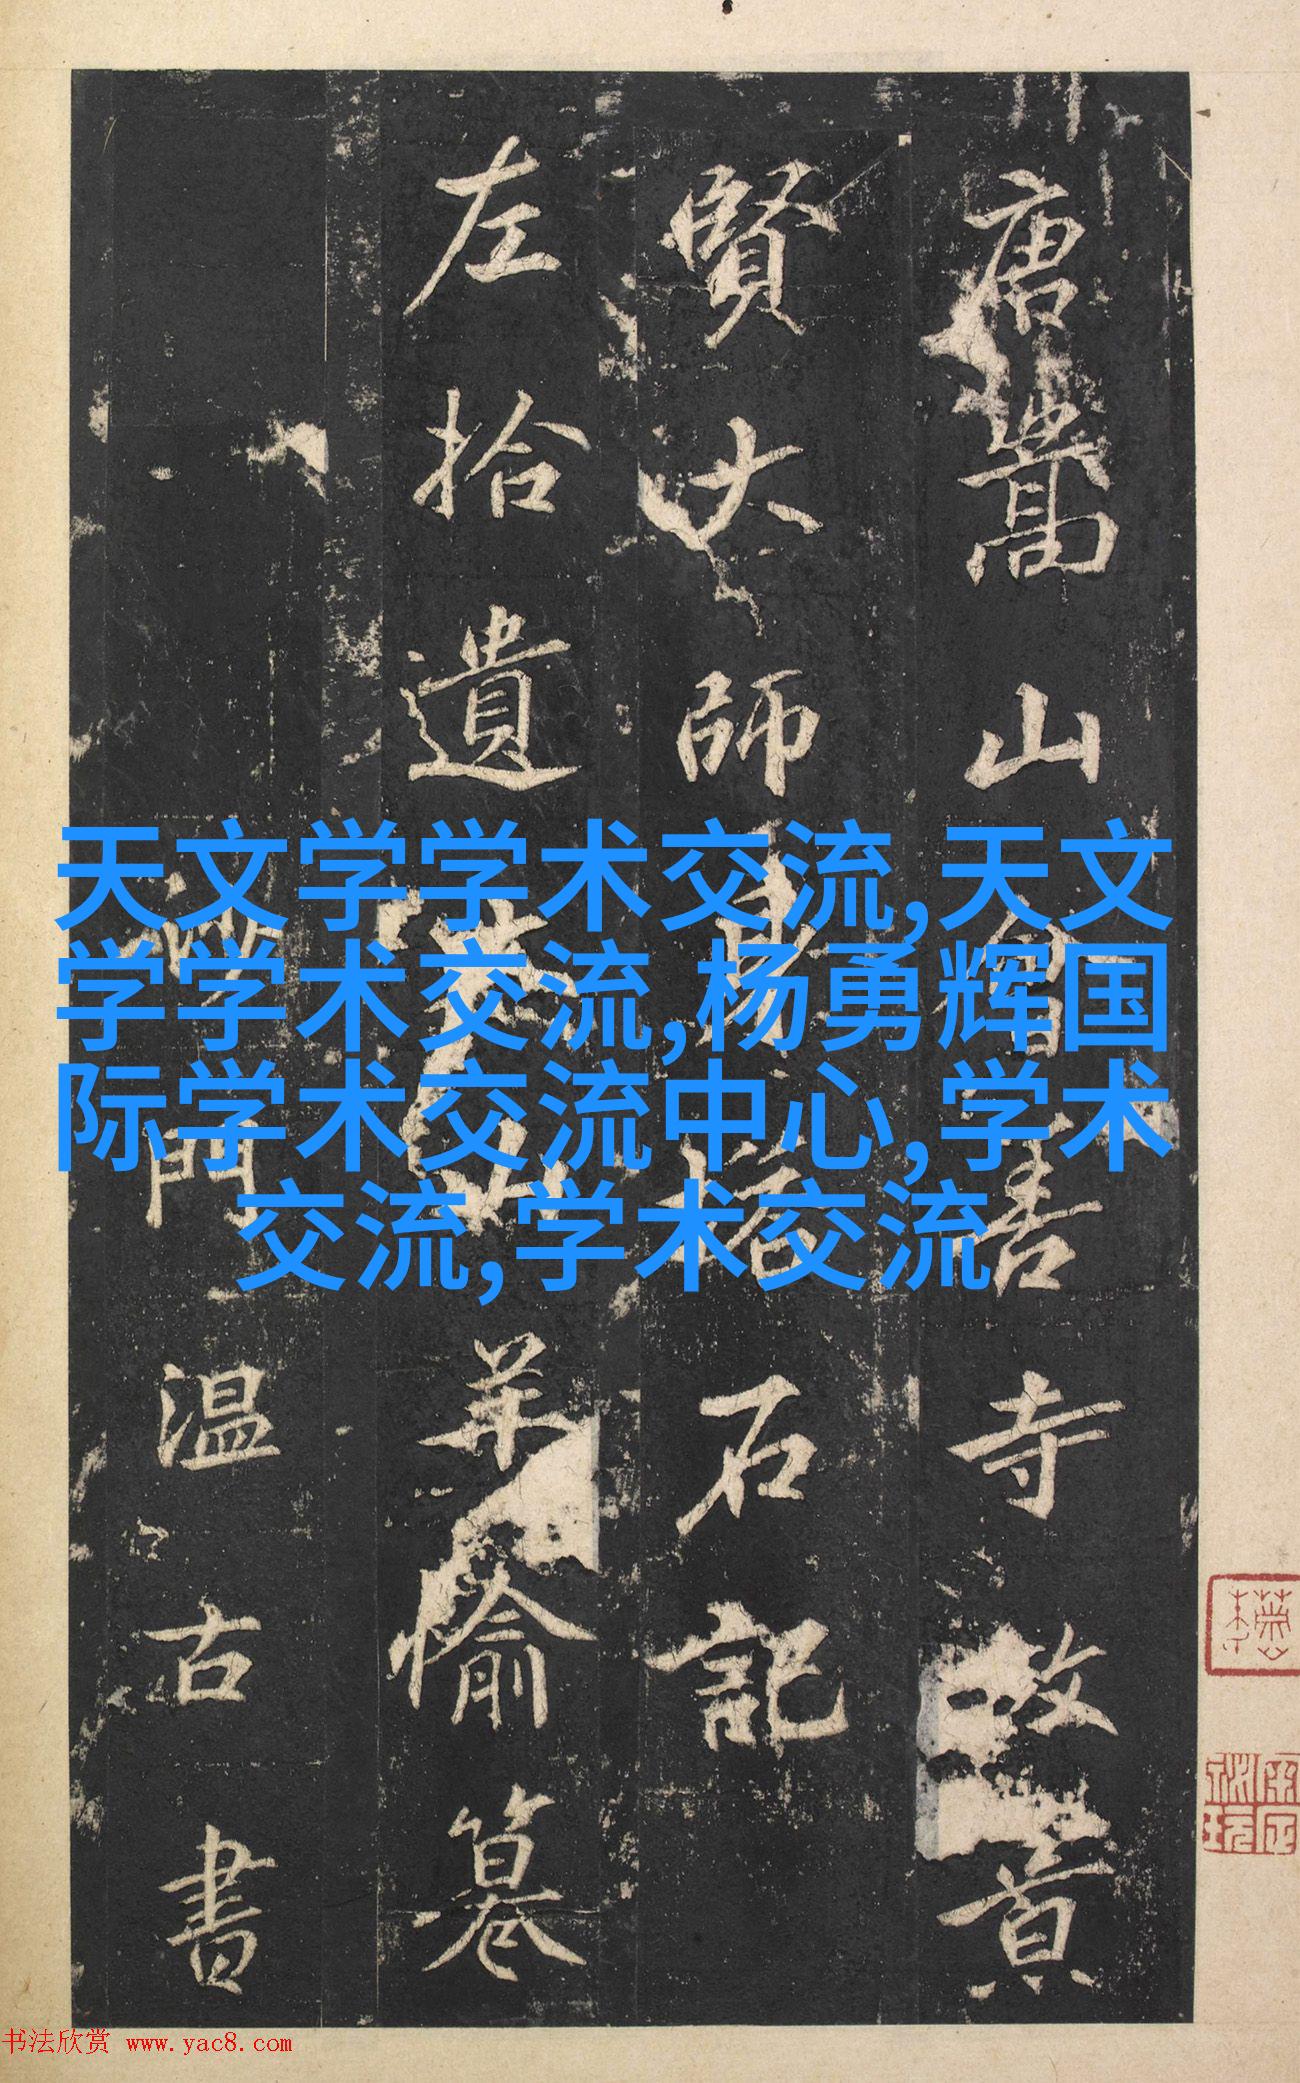 唐嵩山會善寺故景
賢大師身塔石記
左拾遺山羊愉
沙門温古書
天文学学术交流,天文
学学术交流,杨勇辉国
际学术交流中心,学术
交流,学术交流
书法欣赏 www.yac8.com